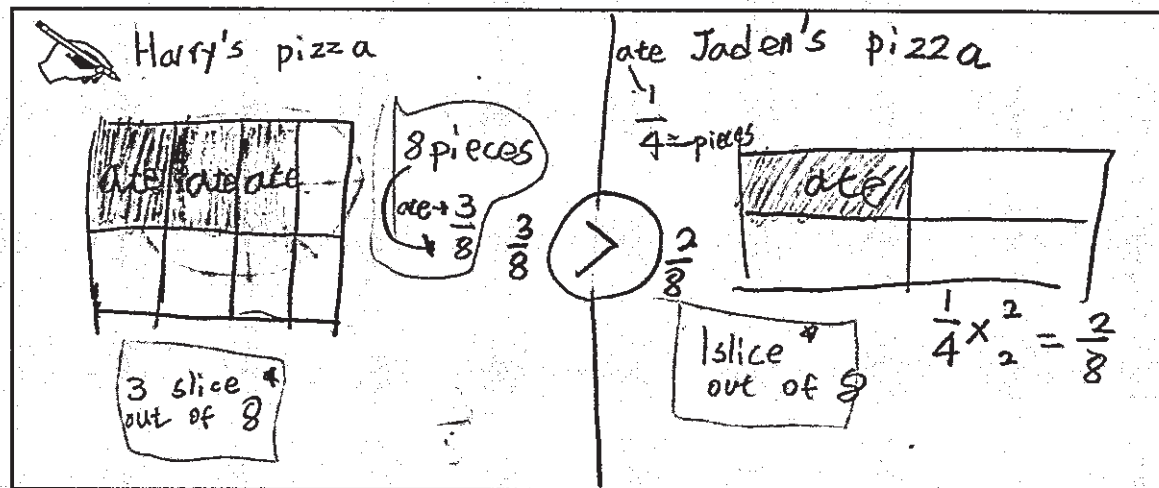 Harry's pizza
ate ate ate
8 pieces
ate → 3/8
3/8 > 2/8
3 slice
out of 8
ate Jaden's pizza
1/4 = pieces
ate
1 slice
out of 8
1/4 × 2/2 = 2/8